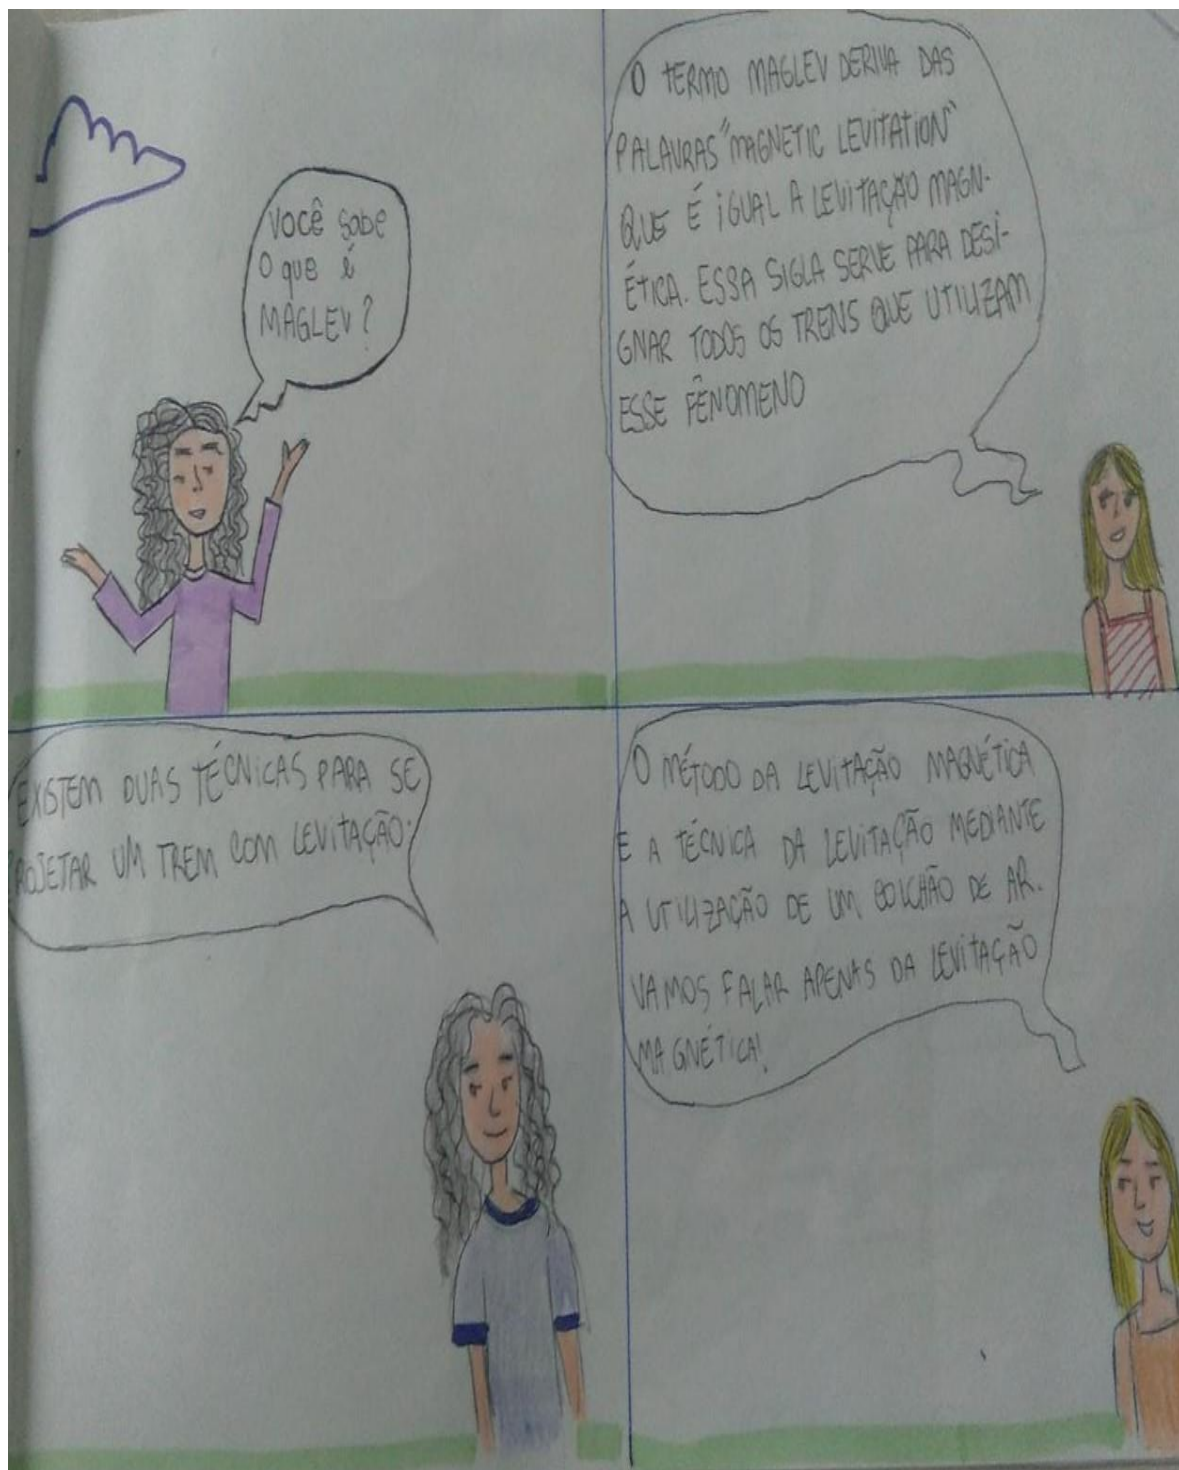 Você sabe
O que é
MAGLEV?
O TERMO MAGLEV DERIVA DAS
PALAVRAS "MAGNETIC LEVITATION"
QUE É IGUAL A LEVITAÇÃO MAGN-
ÉTICA. ESSA SIGLA SERVE PARA DESI-
GNAR TODOS OS TRENS QUE UTILIZAM
ESSE FÊNOMENO
EXISTEM DUAS TÉCNICAS PARA SE
PROJETAR UM TREM COM LEVITAÇÃO:
O MÉTODO DA LEVITAÇÃO MAGNÉTICA
E A TÉCNICA DA LEVITAÇÃO MEDIANTE
A UTILIZAÇÃO DE UM COLCHÃO DE AR.
VAMOS FALAR APENAS DA LEVITAÇÃO
MAGNÉTICA!